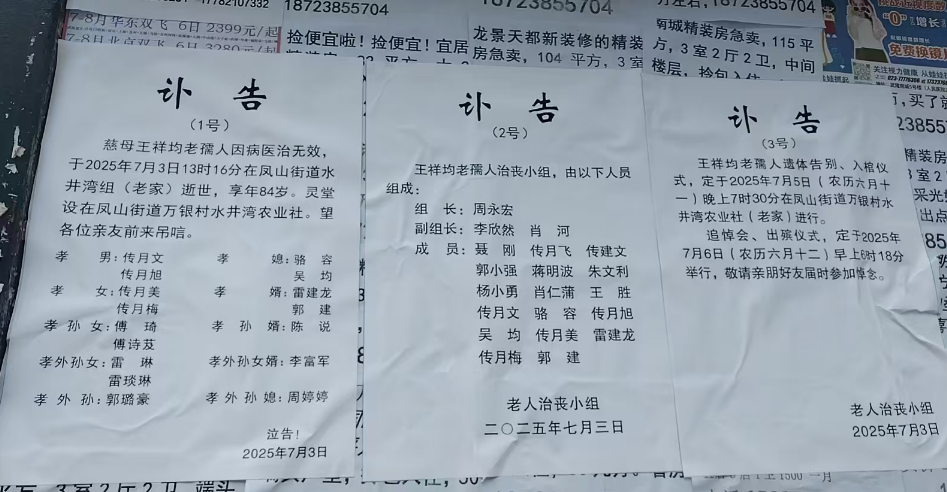 7-8月华东双飞 6日 2399元/起
7-8月北京双飞 6日 3280元/起
18723855704
捡便宜啦！捡便宜！宜居
18723855704
龙景天都新装修的精装
房急卖，104 平方，3室
18723855704
南城精装房急卖，115 平
方，3室2厅2卫，中间
楼层，拎包入住
免费换镜片
讣 告
（1号）
慈母王祥均老孺人因病医治无效，
于2025年7月3日13时16分在凤山街道水
井湾组（老家）逝世，享年84岁。灵堂
设在凤山街道万银村水井湾农业社。望
各位亲友前来吊唁。
孝 男：传月文 孝 媳：骆 容
传月旭 吴 均
孝 女：传月美 孝 婿：雷建龙
传月梅 郭 建
孝 孙 女：傅 琦 孝 孙 婿：陈 说
傅诗芨
孝外孙女：雷 琳 孝外孙女婿：李富军
雷琰琳
孝 外 孙：郭璐豪 孝 外 孙 媳：周婷婷
泣告！
2025年7月3日
讣 告
（2号）
王祥均老孺人治丧小组，由以下人员
组成：
组 长：周永宏
副组长：李欣然 肖 河
成 员：聂 刚 传月飞 传建文
郭小强 蒋明波 朱文利
杨小勇 肖仁蒲 王 胜
传月文 骆 容 传月旭
吴 均 传月美 雷建龙
传月梅 郭 建
老人治丧小组
二〇二五年七月三日
讣 告
（3号）
王祥均老孺人遗体告别、入棺仪
式，定于2025年7月5日（农历六月十
一）晚上7时30分在凤山街道万银村水
井湾农业社（老家）进行。
追悼会、出殡仪式，定于2025年
7月6日（农历六月十二）早上6时18分
举行，敬请亲朋好友届时参加悼念。
老人治丧小组
2025年7月3日